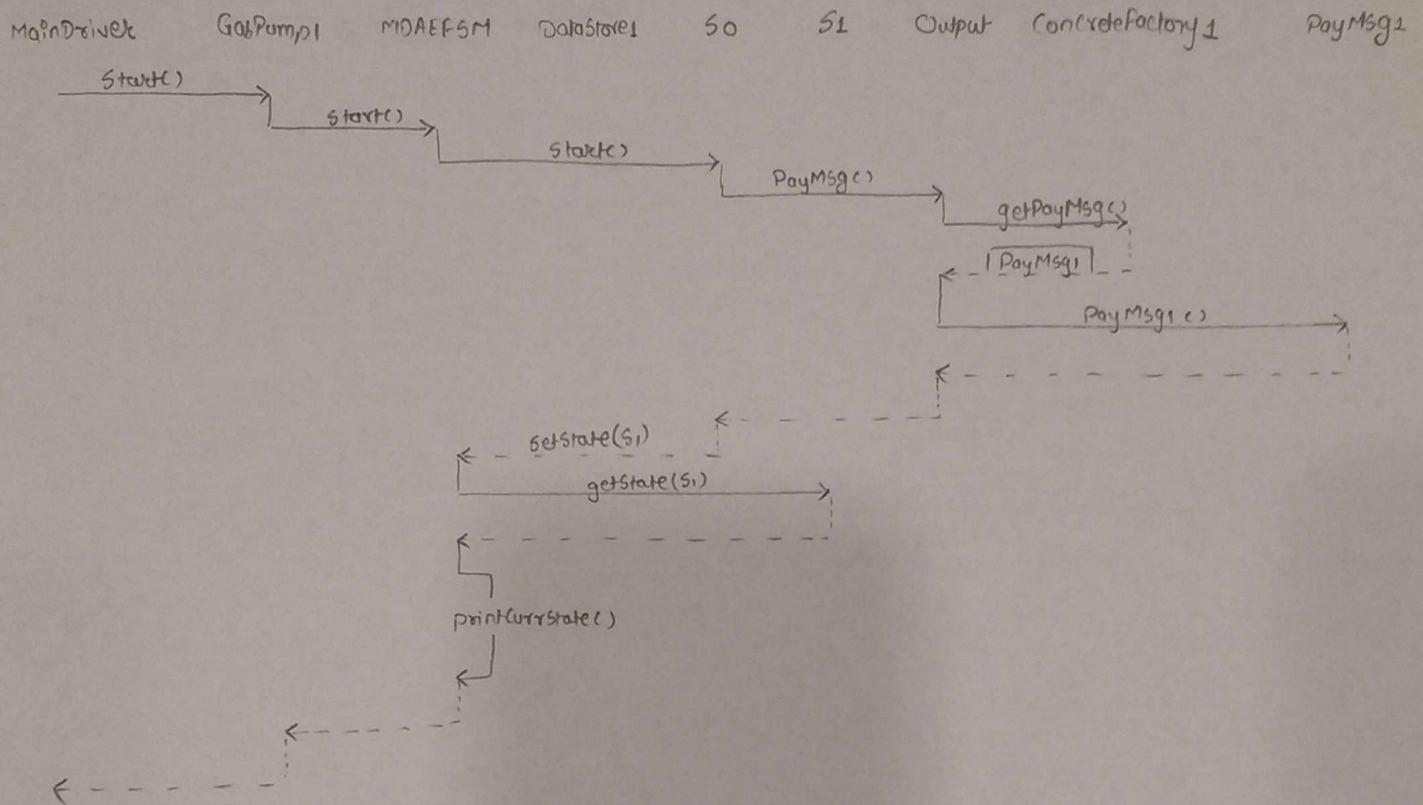 MainDriver GasPump1 MDAEFSM DataStore1 S0 S1 Output ConcreteFactory1 PayMsg1
Start()
Start()
Start()
PayMsg()
getPayMsg()
PayMsg1
PayMsg1()
setState(S1)
getState(S1)
printCurrState()